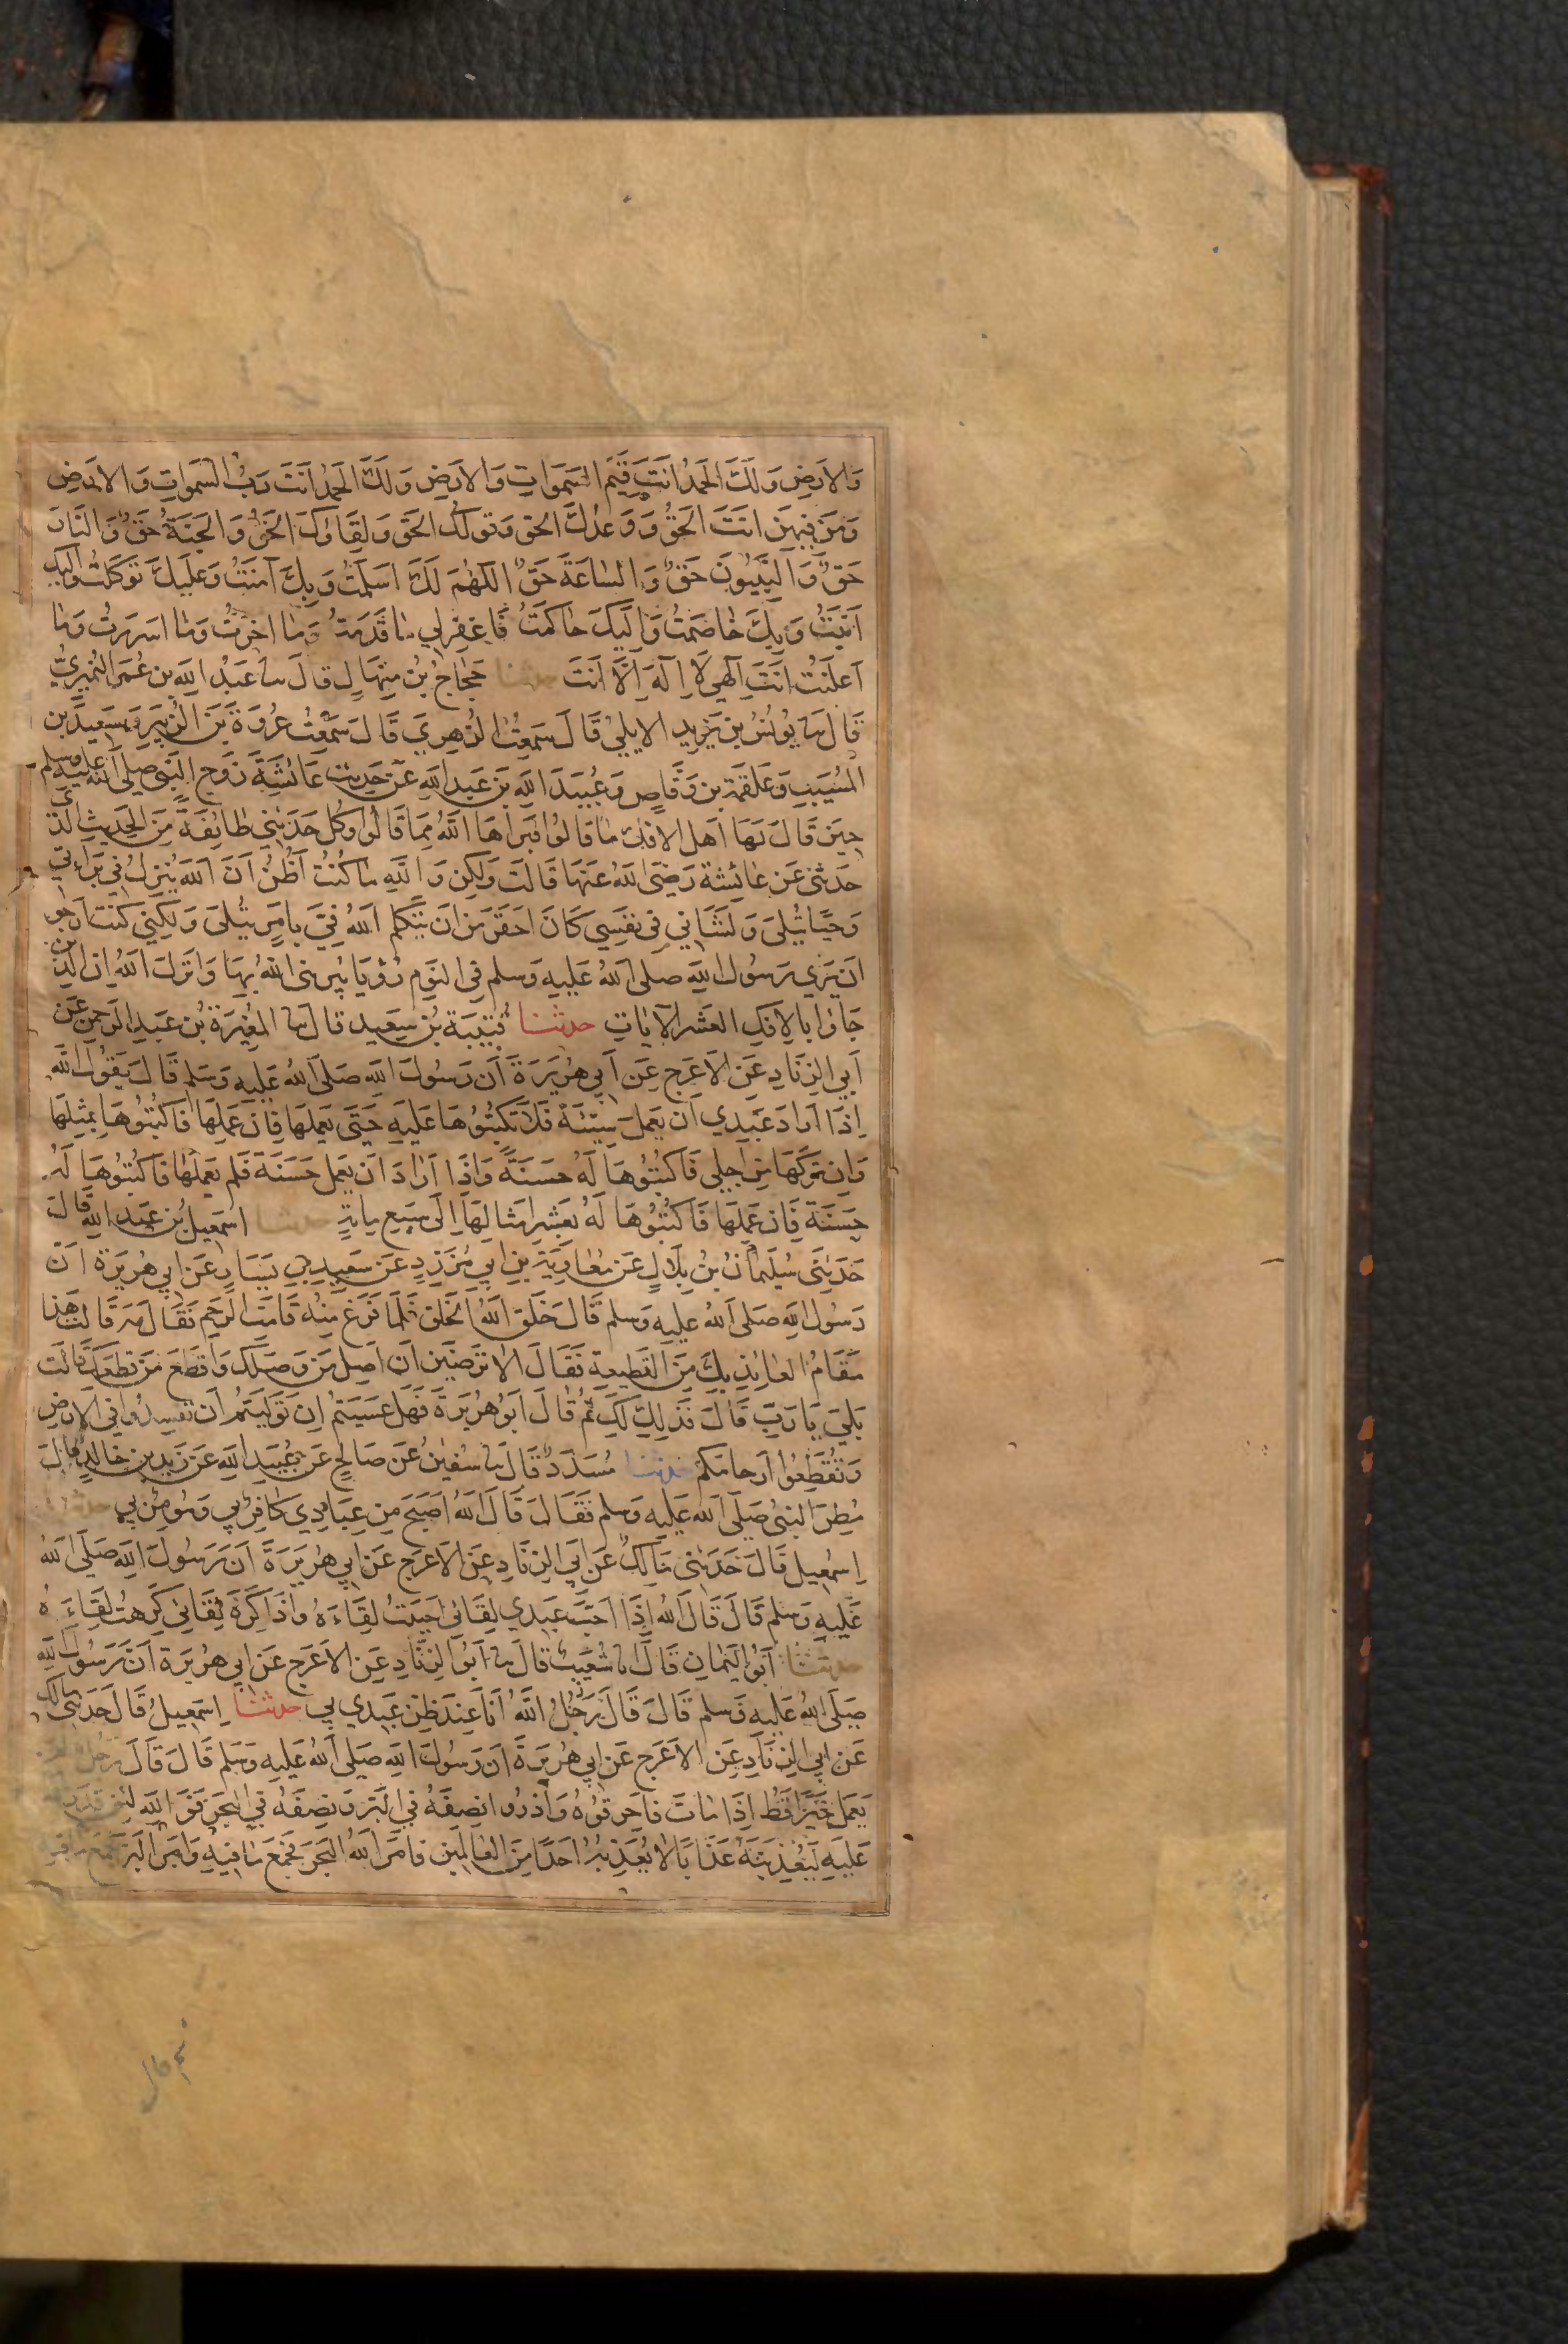 وَالاَرَضِ وَلَكَ الْحَمْدُ اَنْتَ قَيِّمُ السَّمَوَاتِ وَالاَرَضِ وَلَكَ الْحَمْدُ اَنْتَ رَبُّ السَّمَوَاتِ وَالاَرَضِ
وَمَنْ فِيهِنَّ اَنْتَ الْحَقُّ وَوَعْدُكَ الحَق وَقَولُكَ الْحَق وَلِقَاؤكَ الْحَقُّ وَالْجَنَّةُ حَقٌّ وَالنَّارُ
حَقٌّ وَالنَّبِيُّونَ حَقٌّ وَالسَّاعَةُ حَقٌّ اللّهُمَّ لَكَ اَسْلَمْتُ وَبِكَ آمَنْتُ وَعَلَيكَ تَوَكَّلْتُ وَاِلَيكَ
اَنَبْتُ وَبِكَ خَاصَمْتُ وَاِلَيكَ حَاكَمْتُ فَاغْفِرْلِي مَا قَدَّمْتُ وَمَا اَخَّرْتُ وَمَا اَسْرَرْتُ وَمَا
اَعْلَنْتُ اَنْتَ اِلَهِي لَا اِلَهَ اِلَّا اَنْتَ حدثنا حَجَّاجُ بْنُ مِنْهَالٍ قَالَ سا عَبْدُ اللهِ بن عُمَرَ النُّمَيرِيُّ
قَالَ سا يُونُسُ بن يَزِيد الايلِيُّ قَالَ سَمِعْتُ الزُّهرِيَّ قَالَ سَمِعْتُ عُروَةَ بْنَ الزُّبَيرِ وَسَعِيدَ بن
المُسَيَّبِ وَعَلقَمَةَ بن وَقَّاصٍ وَعُبَيدَ اللهِ بنَ عَبدِ اللهِ عَنْ حَدِيثِ عَائِشَةَ زَوْجِ النَّبِيِّ صلى الله عليه وسلم
حِينَ قَالَ لَهَا اَهلُ الافكِ مَا قَالُوا فَبَرَّأهَا اللهُ مِمَّا قَالُوا وَكُلٌّ حَدَّثَنِي طَائِفَةً مِنَ الحَدِيثِ الَّذِي
حَدَّثَنِي عَنْ عَائِشَةَ رَضِيَ اللهُ عَنهَا قَالَت وَلَكِن وَاللهِ مَا كُنْتُ اَظُنُّ اَنَّ اللهَ يُنْزِلُ فِي بَرَاءَتِي
وَحيًا يُتْلَى وَلَشَانِي فِي نَفسِي كَانَ احْقَرَ مِنْ انْ يَتَكَلَّمَ اللهُ فِيَّ بِامْرٍ يُتْلَى وَلَكِنِّي كُنْتُ اَرجُو
اَنْ يَرَي رَسُولُ اللهِ صلى اللهُ عَلَيهِ وَسلم فِي النَّومِ رُؤيَا يُبَرِّئنِي اللهُ بِهَا وَانْزَلَ اللهُ انَّ الَّذِينَ
جَاؤُا بِالافكِ العَشرَ الايَاتِ حدثنا قُتَيبَةُ بْنُ سَعِيدٍ قَالَ سا المُغِيرَةُ بْنُ عَبدِ الرَّحمنِ عَن
اَبِي الزِّنَادِ عَنِ الاَعرَجِ عَن اَبِي هُرَيرَةَ اَنَّ رَسُولَ اللهِ صَلَّى اللهُ عَلَيهِ وَسَلم قَالَ يَقُولُ اللهُ
اِذَا اَرَادَ عَبْدِي اَنْ يَعْمَلَ سَيِّئَةً فَلاَ تَكْتُبُوهَا عَلَيهِ حَتَّى يَعمَلَهَا فَاِنْ عَمِلَهَا فَاكْتُبُوهَا بِمِثلِهَا
وَاِنْ تَرَكَهَا مِنْ اَجلِي فَاكْتُبُوهَا لَهُ حَسَنَةً وَاِذَا اَرَادَ اَنْ يَعمَلَ حَسَنَةً فَلَم يَعمَلْهَا فَاكْتُبُوهَا لَهُ
حَسَنَةً فَاِنْ عَمِلَهَا فَاكْتُبُوهَا لَهُ بِعَشرِ اَمثَالِهَا اِلَى سَبعِ مِايَةٍ حدثنا اِسمعِيلُ بْنُ عَبدِ اللهِ قَالَ
حَدَّثَنِي سُلَيمَانُ بْنُ بِلَالٍ عَن مُعَاوِيَةَ بنِ اَبِي مُزَرِّدٍ عَن سَعِيدِ بنِ يَسَارٍ عَن اَبِي هُرَيرَةَ اَنَّ
رَسُولَ اللهِ صَلَّى اللهُ عَلَيهِ وَسلم قَالَ خَلَقَ اللهُ الخَلقَ فَلَمَّا فَرَغَ مِنهُ قَامَتِ الرَّحِمُ فَقَالَ مَه قَالَت هَذَا
مَقَامُ العَائِذِ بِكَ مِنَ القَطِيعَةِ فَقَالَ اَلاَ تَرضَينَ اَن اَصِلَ مَن وَصَلَكِ وَاَقطَعَ مَن قَطَعَكِ قَالَت
بَلَى يَا رَبِّ قَالَ فَذَلِكِ لَكِ ثُمَّ قَالَ اَبُو هُرَيرَةَ فَهَل عَسَيتُم اِن تَوَلَّيتُم اَن تُفسِدُوا فِي الاَرضِ
وَتُقَطِّعُوا اَرحَامَكُم حدثنا مُسَدَّدٌ قَالَ سا سُفينُ عَن صَالِحٍ عَن عُبَيدِ اللهِ عَن زَيدِ بنِ خَالِدٍ قَالَ
مُطِرَ النَّبِيُّ صَلَّى الله عَلَيهِ وَسلم فَقَالَ قَالَ اللهُ اَصبَحَ مِن عِبَادِي كَافِرٌ بِي وَمُؤمِنٌ بِي حدثنا
اِسمعِيل قَالَ حَدَّثَنِي مَالِكٌ عَن اَبِي الزِّنَادِ عَنِ الاَعرَجِ عَن اَبِي هُرَيرَةَ اَنَّ رَسُولَ اللهِ صَلَّى اللهُ
عَلَيهِ وَسلم قَالَ قَالَ اللهُ اِذَا اَحَبَّ عَبدِي لِقَائِي اَحبَبتُ لِقَاءَهُ وَاذَا كَرِهَ لِقَائِي كَرِهتُ لِقَاءَهُ
حدثنا اَبُو اليَمَانِ قَالَ سا شُعَيبٌ قَالَ سا اَبُو الزِّنَادِ عَنِ الاَعرَجِ عَن اَبِي هُرَيرَةَ اَنَّ رَسُولَ اللهِ
صَلَّى اللهُ عَلَيهِ وَسلم قَالَ قَالَ رَجُلٌ اللهُ اَنَا عِندَ ظَنِّ عَبدِي بِي حدثنا اِسمعِيلُ قَالَ حَدَّثَنِي مَالِكٌ
عَن اَبِي الزِّنَادِ عَنِ الاَعرَجِ عَن اَبِي هُرَيرَةَ اَنَّ رَسُولَ اللهِ صَلَّى اللهُ عَلَيهِ وَسَلم قَالَ قَالَ رَجُلٌ
يَعمَل خَيرًا قَطُّ اِذَا مَاتَ فَاَحرِقُوهُ وَاَذرُوا نِصفَهُ فِي البَرِّ وَنِصفَهُ فِي البَحرِ فَوَ اللهِ لَئِن قَدَرَ
عَلَيهِ لَيُعَذِّبَنَّهُ عَذَابًا لاَ يُعَذِّبُهُ اَحَدًا مِنَ العَالَمِينَ فَامَرَ اللهُ البَحرَ فَجَمَعَ مَا فِيهِ وَاَمَرَ البَرَّ فَجَمَعَ مَا فِيهِ
ثم قال